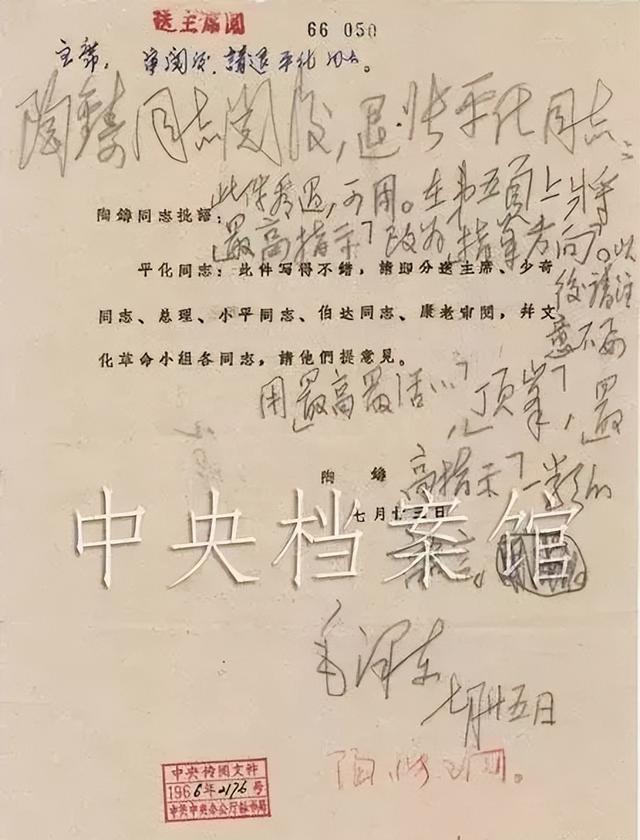 送主席閱
66 050
主席,审阅后,請退平化同志。
陶鑄同志阅后,退张平化同志:
此件看过,可用。在第五頁上将
「最高指示」改为「指导方向」。以
后请注
意不要
用「最高最活…」,「顶峯」,「最
高指示」一类的
陶鑄同志批語:
平化同志:此件写得不錯,請即分送主席、少奇
同志、总理、小平同志、伯达同志、康老审閱,幷文
化革命小組各同志,請他們提意見。
陶鑄
七月廿三日
中央档案馆
毛泽东
七月廿五日
中央传閱文件
1966年2176号
中共中央办公厅秘书局